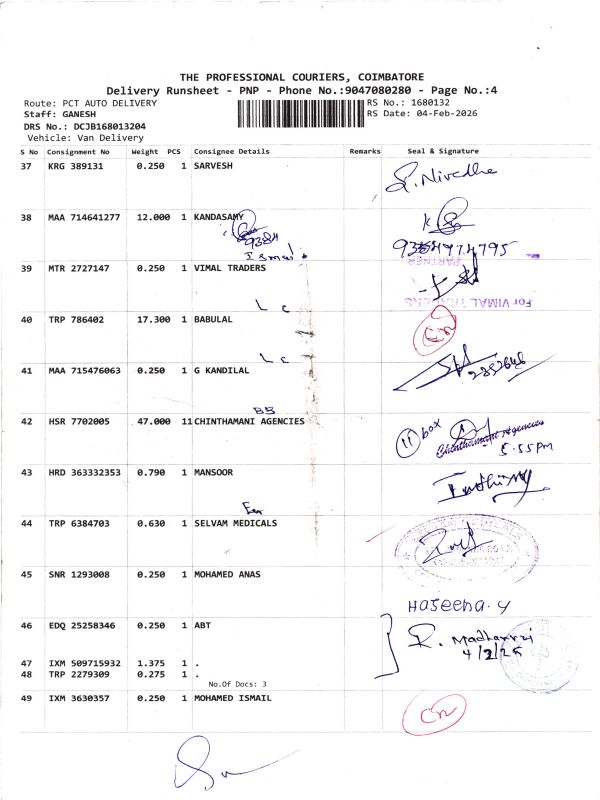 THE PROFESSIONAL COURIERS, COIMBATORE
Delivery Runsheet - PNP - Phone No.:9047080280 - Page No.:4
Route: PCT AUTO DELIVERY
RS No.: 1680132
Staff: GANESH
RS Date: 04-Feb-2026
DRS No.: DCJB168013204
Vehicle: Van Delivery
S No Consignment No Weight PCS Consignee Details Remarks Seal & Signature
37 KRG 389131 0.250 1 SARVESH
Nivedha
38 MAA 714641277 12.000 1 KANDASAMY
9384
9384974795
Ismail
39 MTR 2727147 0.250 1 VIMAL TRADERS
PARTNER
For VIMAL TRADERS
L C
40 TRP 786402 17.300 1 BABULAL
CN
L C
41 MAA 715476063 0.250 1 G KANDILAL
BB
42 HSR 7702005 47.000 11 CHINTHAMANI AGENCIES
11 box
Chinthamani Agencies
5.55PM
43 HRD 363332353 0.790 1 MANSOOR
44 TRP 6384703 0.630 1 SELVAM MEDICALS
45 SNR 1293008 0.250 1 MOHAMED ANAS
Haseena.Y
46 EDQ 25258346 0.250 1 ABT
R. Madhanraj
4/2/25
47 IXM 509715932 1.375 1 .
48 TRP 2279309 0.275 1 .
No.Of Docs: 3
49 IXM 3630357 0.250 1 MOHAMED ISMAIL
CN